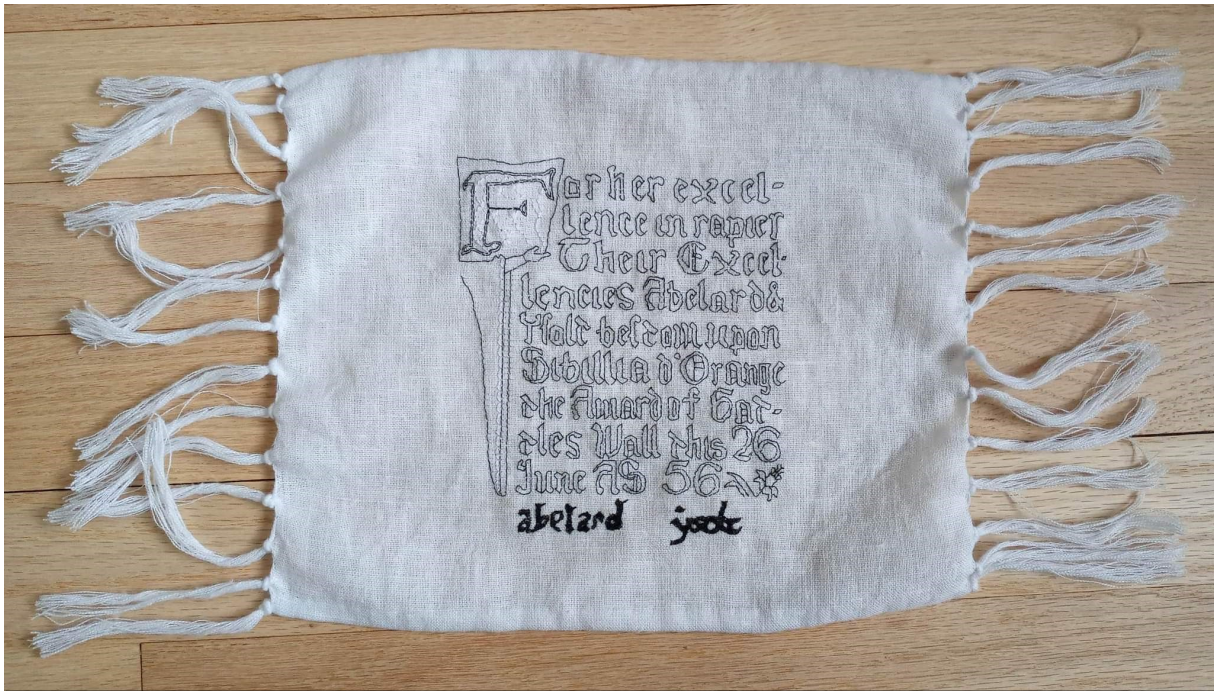 For her excel-
lence in rapier
Their Excel-
lencies Abelard &
Ysolt bestow upon
Sibillia d'Orange
the Award of Gar-
des Wall this 26
June AS 56
abelard